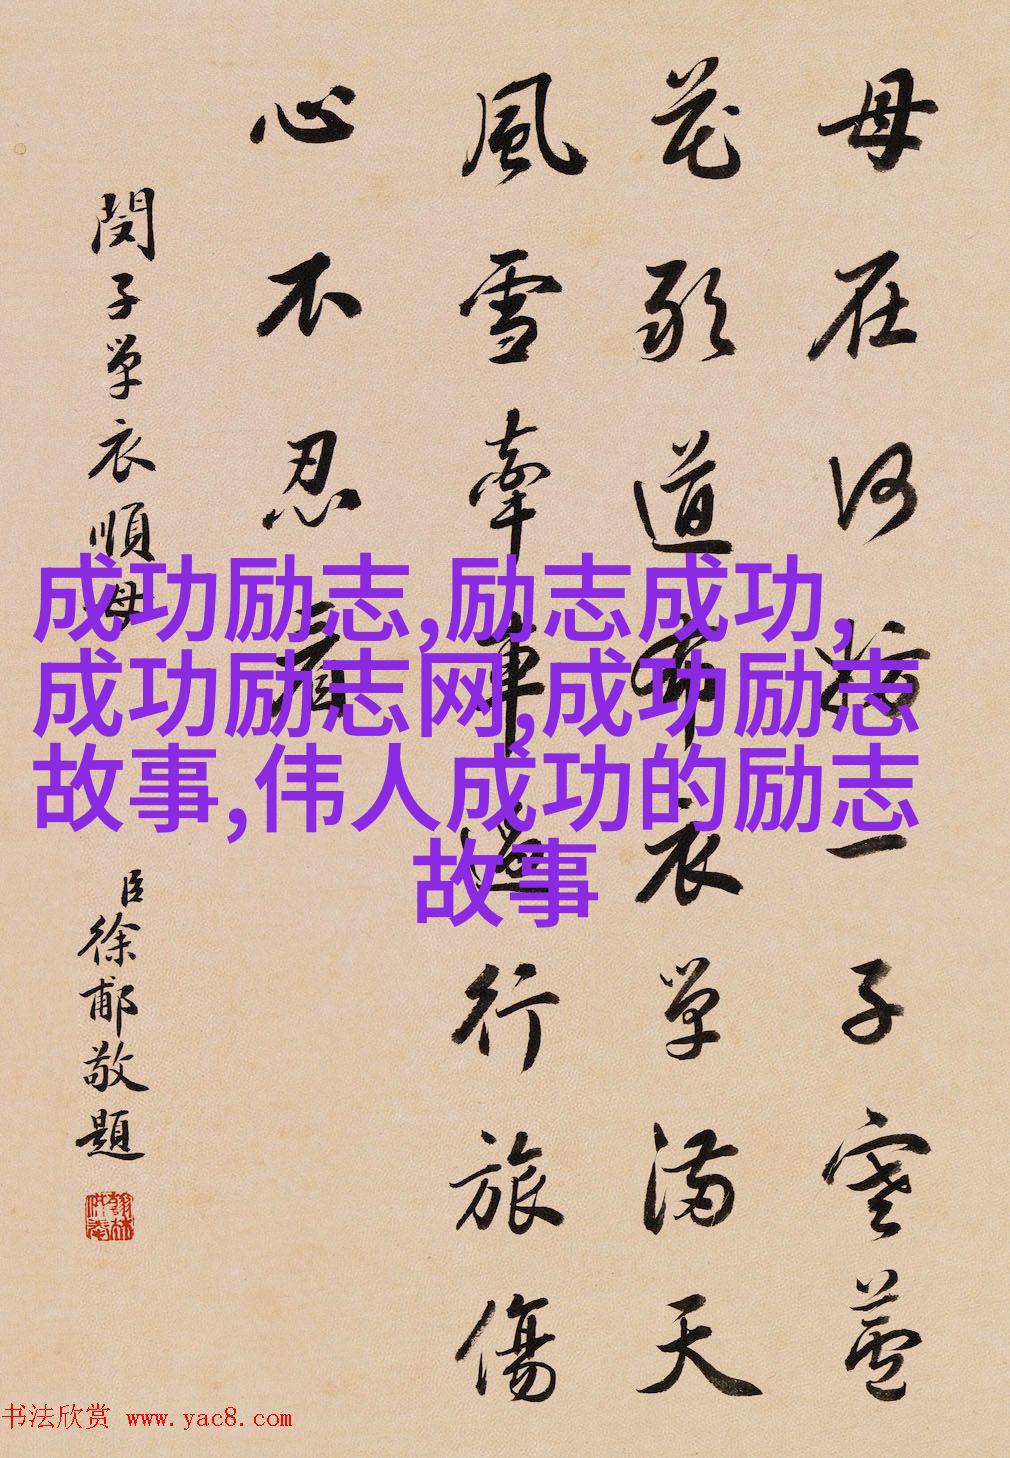 母在何妨一子寒蘆
花敢道布衣單滿天
風雪牽車行旅傷
心不忍看
閔子單衣順母
臣徐郙敬題
翰林供奉
成功励志,励志成功,
成功励志网,成功励志
故事,伟人成功的励志
故事
书法欣赏 www.yac8.com